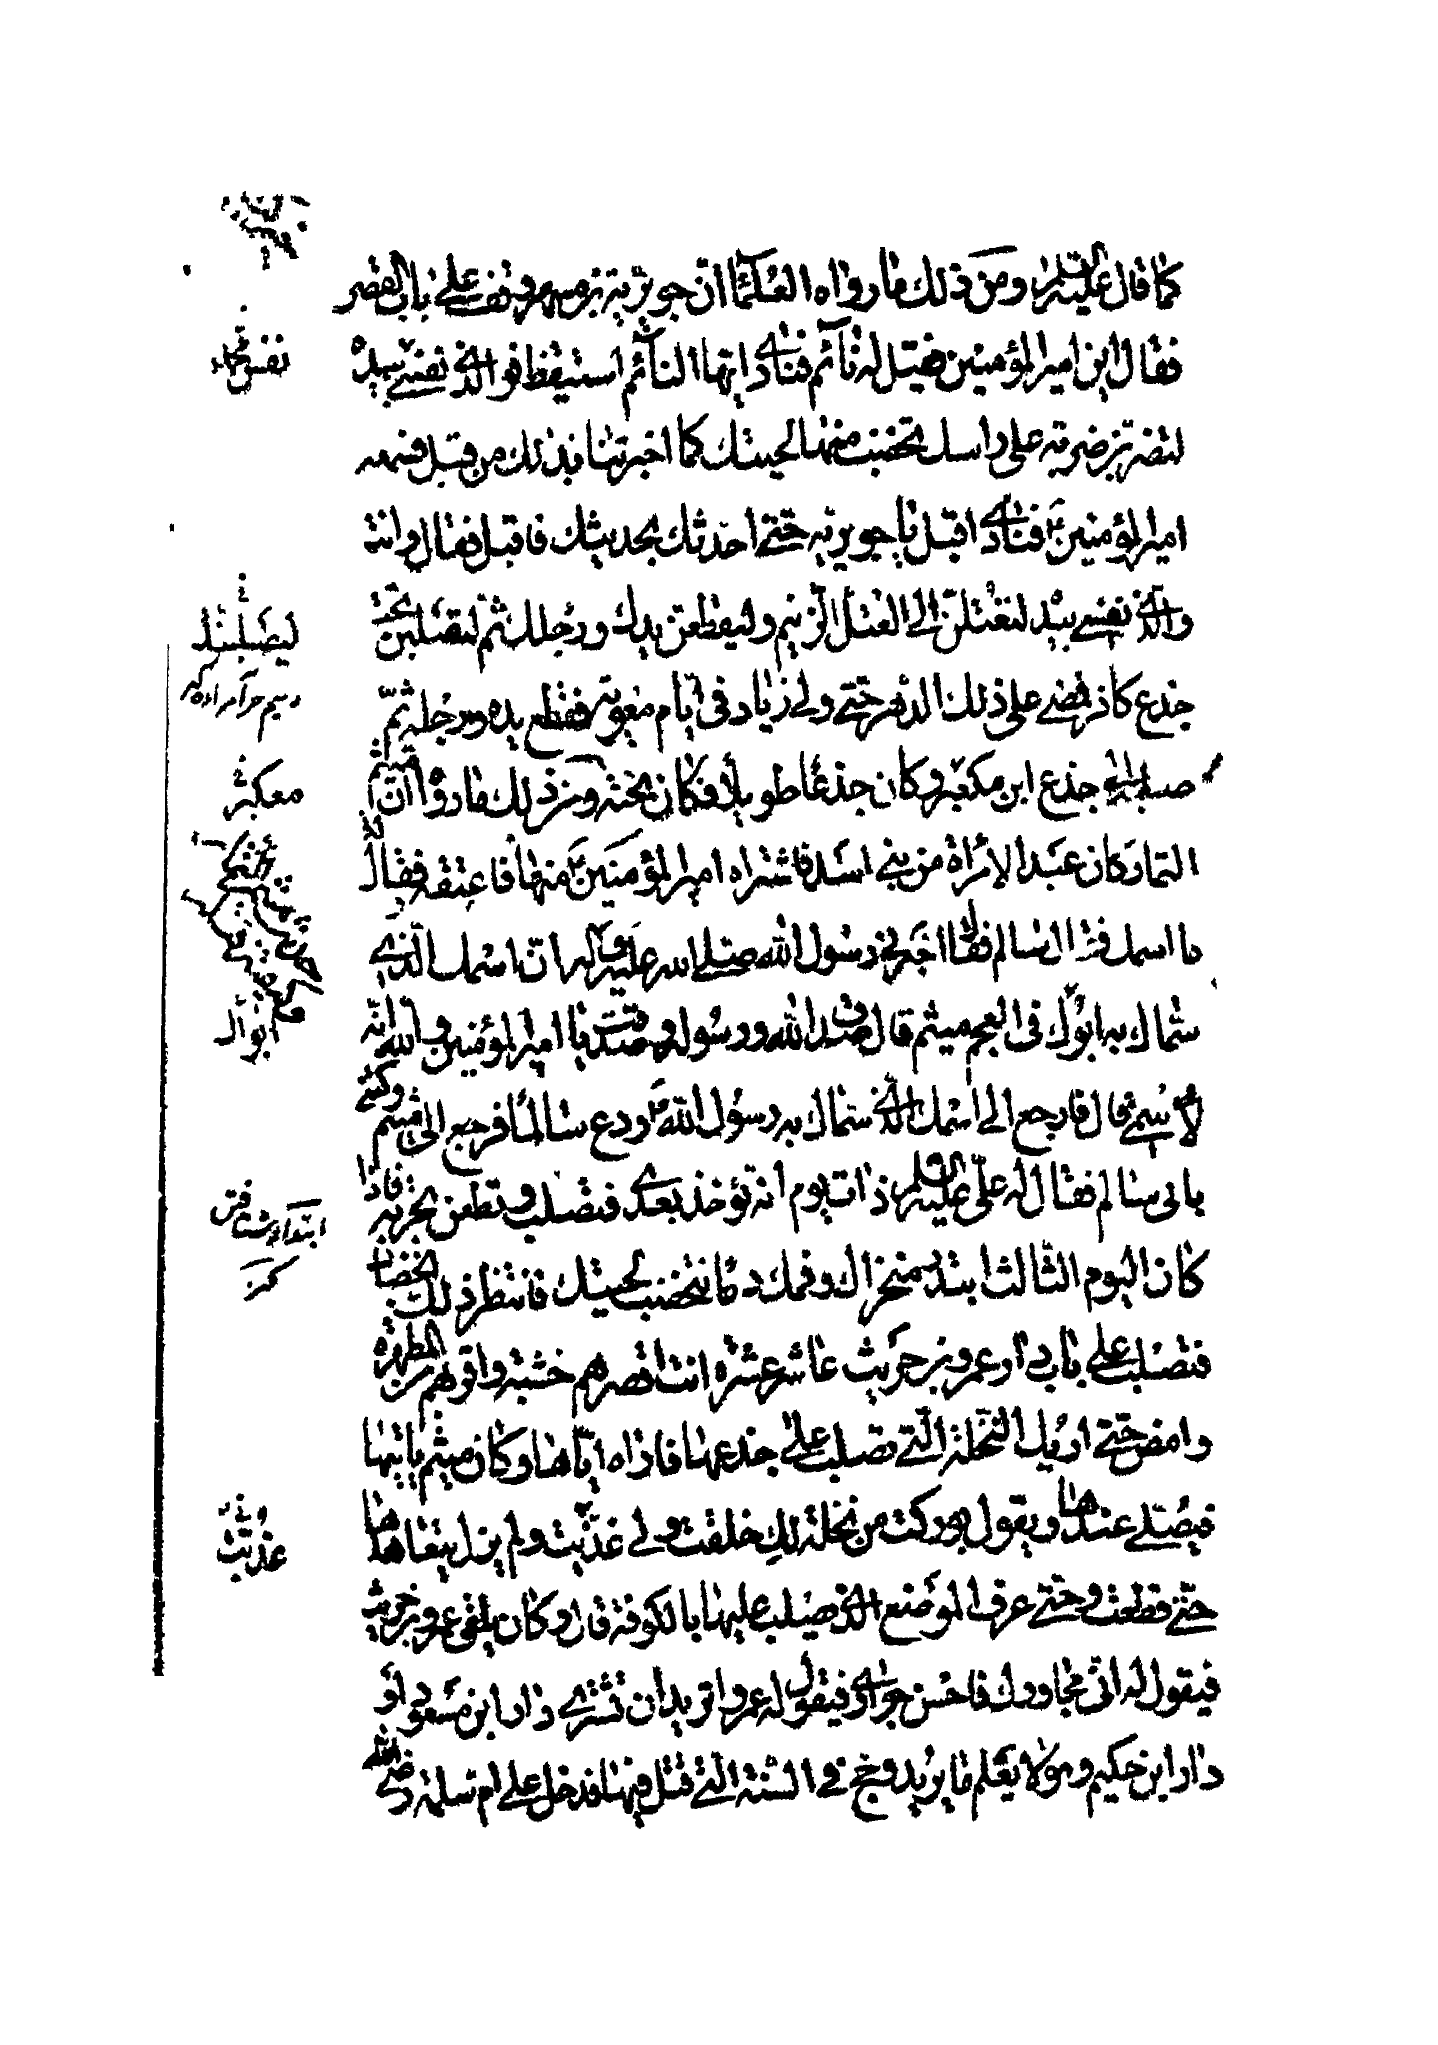 كما قال عليه السلام ومن ذلك ما رواه العلماء ان جويرية بن مسهر وقف على باب القصر
فقال اين امير المؤمنين فقيل له نائم فنادى ايها النائم استيقظ فو الذى نفسى بيده
لتضربن ضربة على راسك تخضب منها لحيتك كما اخبرتنا بذلك من قبل فسمعه
امير المؤمنين ع فنادى اقبل يا جويرية حتى احدثك بحديثك فاقبل فقال وانت
والذى نفسى بيده لتعتلن الى العتل الزنيم وليقطعن يدك ورجلك ثم لتصلبن تحت
جذع كافر فمضى على ذلك الدهر حتى ولى زياد فى ايام معوية فقطع يده ورجله ثم
صلبه الى جذع ابن مكعبر وكان جذعا طويلا فكان تحته ومن ذلك ما رووا ان ميثم
التمار كان عبدا لامراة من بنى اسد فاشتراه امير المؤمنين ع منها فاعتقه فقال له
ما اسمك فقال سالم فقال اخبرنى رسول الله صلى الله عليه وآله ان اسمك الذى
سماك به ابوك فى العجم ميثم قال صدق الله ورسوله وصدقت يا امير المؤمنين والله انه
لاسمى قال فارجع الى اسمك الذى سماك به رسول الله ص ودع سالما فرجع الى ميثم وكنى
بابى سالم فقال له على عليه السلام ذات يوم انه تؤخذ بعدى فتصلب وتطعن بحربة فاذا
كان اليوم الثالث ابتدر منخراك وفمك دما تخضب لحيتك فانتظر ذلك الخضاب
فتصلب على باب دار عمرو بن حريث عاشر عشرة انت اقصرهم خشبة واقربهم من المطهرة
وامض حتى اريك النخلة التى تصلب على جذعها فاراه اياها وكان ميثم ياتيها
فيصلى عندها ويقول بوركت من نخلة لك خلقت ولى غذيت ولم يزل يتعاهدها
حتى قطعت وحتى عرف الموضع الذى صلب عليها بالكوفة قال وكان يلقى عمرو بن حريث
فيقول له انى مجاورك فاحسن جوارى فيقول له عمرو اتريد ان تشترى دار ابن مسعود او
دار ابن حكيم وهو لا يعلم ما يريد وحج فى السنة التى قتل فيها فدخل على ام سلمة رضى الله
ليصلبنك
معكبر
ابوال
ابتدا
غذيت